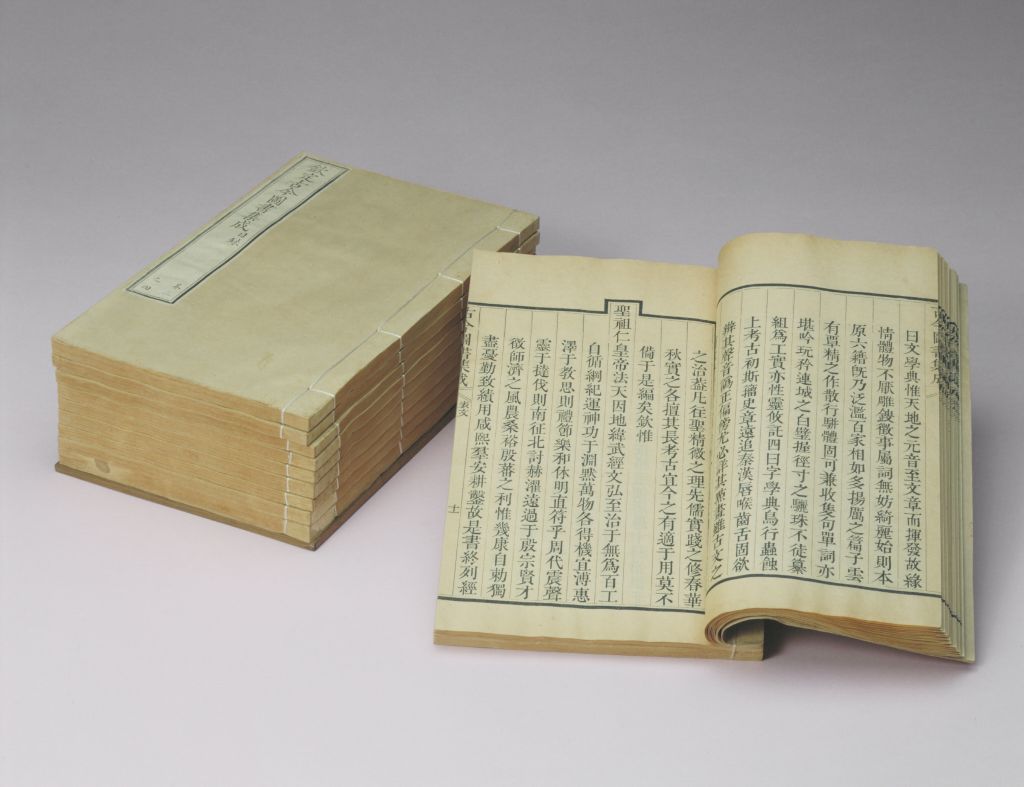 欽定古今圖書集成目錄
曰文學典惟天地之元音至文章而揮發故緣
情體物不厭雕鎪徵事屬詞無妨綺麗始則本
原六籍旣乃泛濫百家相如多揚厲之篇子雲
有覃精之作散行駢體固可兼收隻句單詞亦
堪吟玩矜連城之白璧握徑寸之驪珠不徒纂
組爲工實亦性靈攸託四曰字學典鳥行蟲蝕
上考古初斯籀史章遠追秦漢唇喉齒舌固欲
辨其聲音譌正偏傍尤必詳其點畫雖古文之
之治蓋凡往聖精微之理先儒實踐之修春華
秋實之各擅其長考古宜今之有適于用莫不
備于是編矣欽惟
聖祖仁皇帝法天因地緯武經文弘至治于無爲百工
自循綱紀運神功于淵黙萬物各得機宜溥惠
澤于敎思則禮節樂和休明直符乎周代震聲
靈于撻伐則南征北討赫濯遠過于殷宗賢才
徵師濟之風農桑裕殷蕃之利惟幾康自勅獨
盡憂勤致績用咸熙羣安耕鑿故是書終列經
古今圖書集成 表文 十一